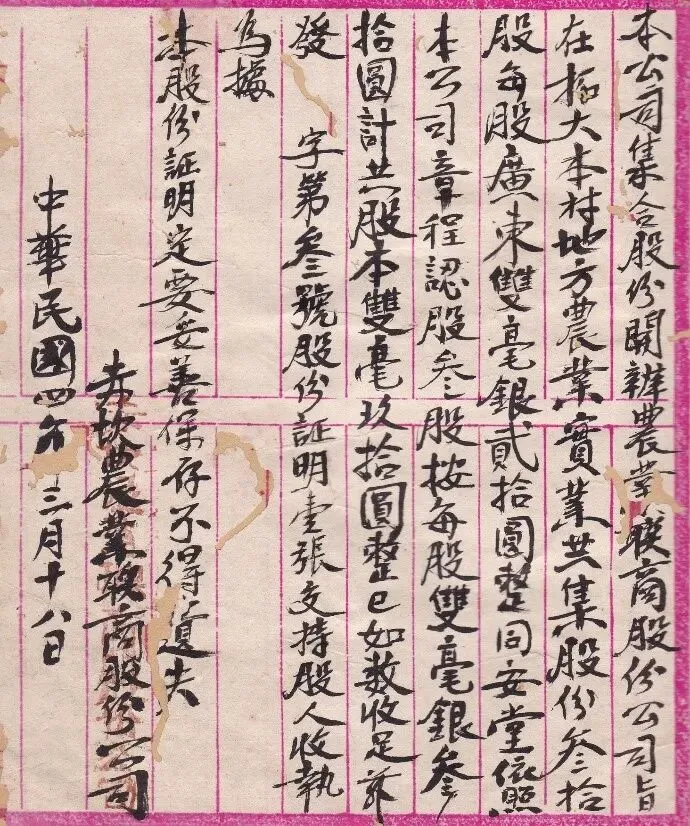 本公司集合股份開辦農業聯商股份公司旨
在拓大本村地方農業實業共集股份叁拾
股每股廣東雙毫銀貳拾圓整同安堂依照
本公司章程認股叁股按每股雙毫銀叁
拾圓計共股本雙毫玖拾圓整已如数收足茲
發　字第叁號股份証明壹張交持股人收執
為據
本股份証明定要妥善保存不得遺失
赤坎農業联商股份公司
中華民國四年三月十八日